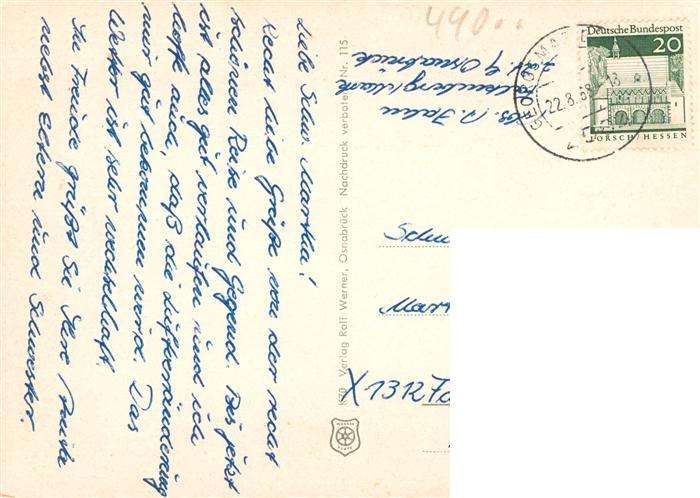 Liebe Schw. Martha!
Recht liebe Grüße von der recht
schönen Reise und Gegend. Bis jetzt
ist alles gut verlaufen und ich
hoffe auch, daß die Luftveränderung
mir gut bekommen wird. Das
Wetter ist sehr wechselhaft.
In Freude grüßt Sie Ihre
nebst Eltern und Schwester.
K70 Verlag Rolf Werner, Osnabrück Nachdruck verboten Nr. 115
490..
Osnabrück
Deutsche Bundespost
20
LORSCH/HESSEN
GEORGSMA
22.8.68-13
X1312